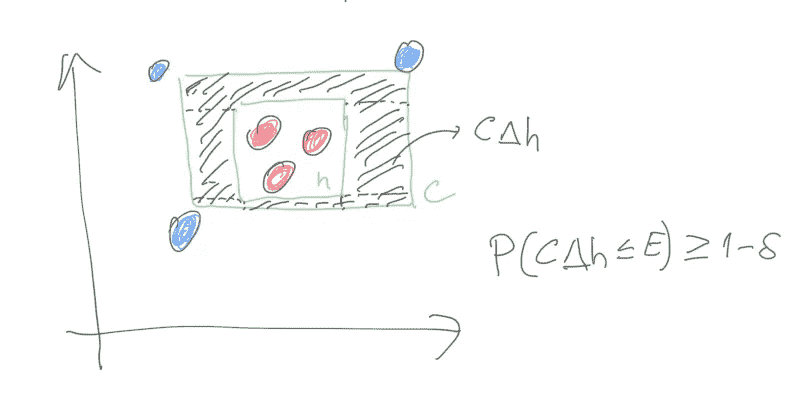 C Δ h
h
C
P(C Δ h ≤ E) ≥ 1-δ